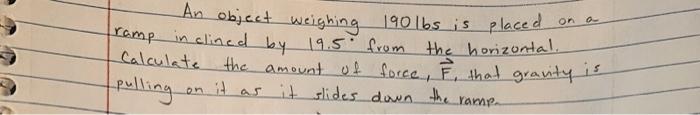 An object weighing 190 lbs is placed on a
ramp inclined by 19.5° from the horizontal.
Calculate the amount of force, F⃗, that gravity is
pulling on it as it slides down the ramp.